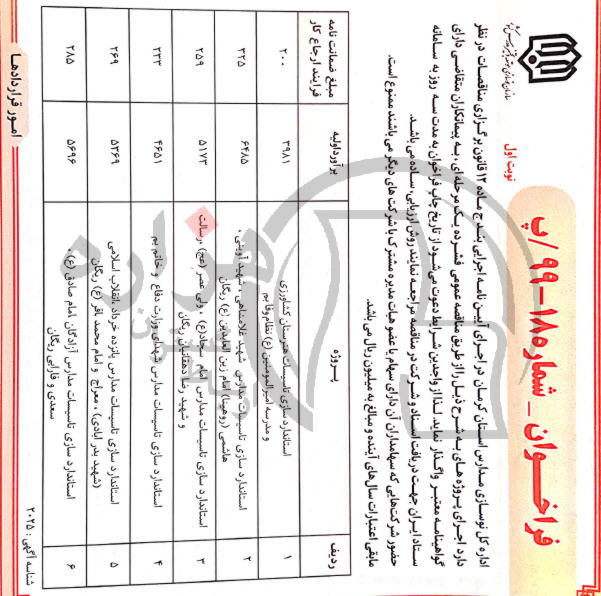 فراخوان _ شماره ۱۸-۹۹ /پ
سازمان نوسازی، توسعه و تجهیز مدارس کشور
نوبت اول
اداره کل نوسازی مدارس استان کرمان در اجرای آیین نامه اجرایی بند ج ماده ۱۲ قانون برگزاری مناقصات در نظر
دارد اجرای پروژه های به شرح ذیل را از طریق مناقصه عمومی فشرده یک مرحله ای ، به پیمانکاران متقاضی دارای
گواهینامه معتبر واگذار نماید. لذا از واجدین شرایط دعوت می‌شود از تاریخ چاپ فراخوان به مدت سه روز به سامانه
ستاد ایران جهت دریافت اسناد و شرکت در مناقصه مراجعه نمایند روش ارزیابی، ساده می باشد.
حضور شرکت‌هایی که سهامداران آن دارای سهام یا عضو هیات مدیره مشترک با شرکت های دیگر می باشند ممنوع است.
مابقی اعتبارات سال‌های آینده و مبالغ به میلیون ریال می باشد.
ردیف پروژه برآورداولیه مبلغ ضمانت نامه
فرایند ارجاع کار
۱ استاندارد سازی تاسیسات هنرستان کشاورزی ۳۹۸۱ ۲۰۰
و مدرسه امیرالمومنین (ع) نظام وفا بم
۲ استاندارد سازی تاسیسات مدارس شهید غلامشاهی ، شهید آوینی ، ۶۴۸۵ ۳۲۵
هاشمی (روهینا) امام زین العابدین (ع) ریگان
۳ استاندارد سازی تاسیسات مدارس امام سجاد(ع) ، ولی عصر (عج) ،رسالت ۵۱۷۳ ۲۵۹
و شهید رضا دهقانیان ریگان
۴ استاندارد سازی تاسیسات مدارس شهدای وزارت دفاع و خاتم بم ۴۶۵۱ ۲۳۳
۵ استاندارد سازی تاسیسات مدارس پانزده خرداد ،انقلاب اسلامی ۵۳۶۹ ۲۶۹
(شهید بدر ابادی) ، معراج و امام محمد باقر (ع) ریگان
۶ استاندارد سازی تاسیسات مدارس آزادگان ،امام صادق (ع) ، ۵۶۹۶ ۲۸۵
سعدی و فارابی ریگان
شناسه آگهی : ۲۰۲۵
امور قراردادها